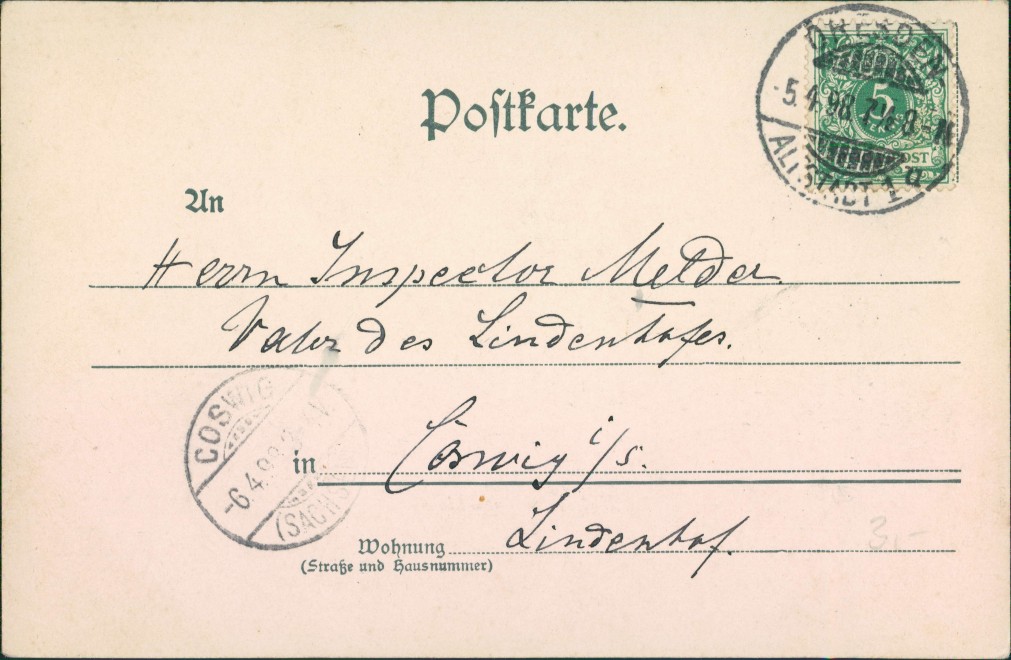 Postkarte.
DRESDEN
5.4.98 7½ 8-N
ALTSTADT 1 q
5
POST
An
Herrn Inspector Melder.
Vater des Lindenhofes.
COSWIG
-6.4.98
(SACHS
in Coswig i/s.
Wohnung Lindenhof.
(Straße und Hausnummer)
3,-